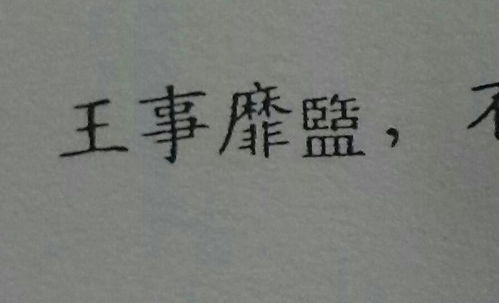 王事靡盬，